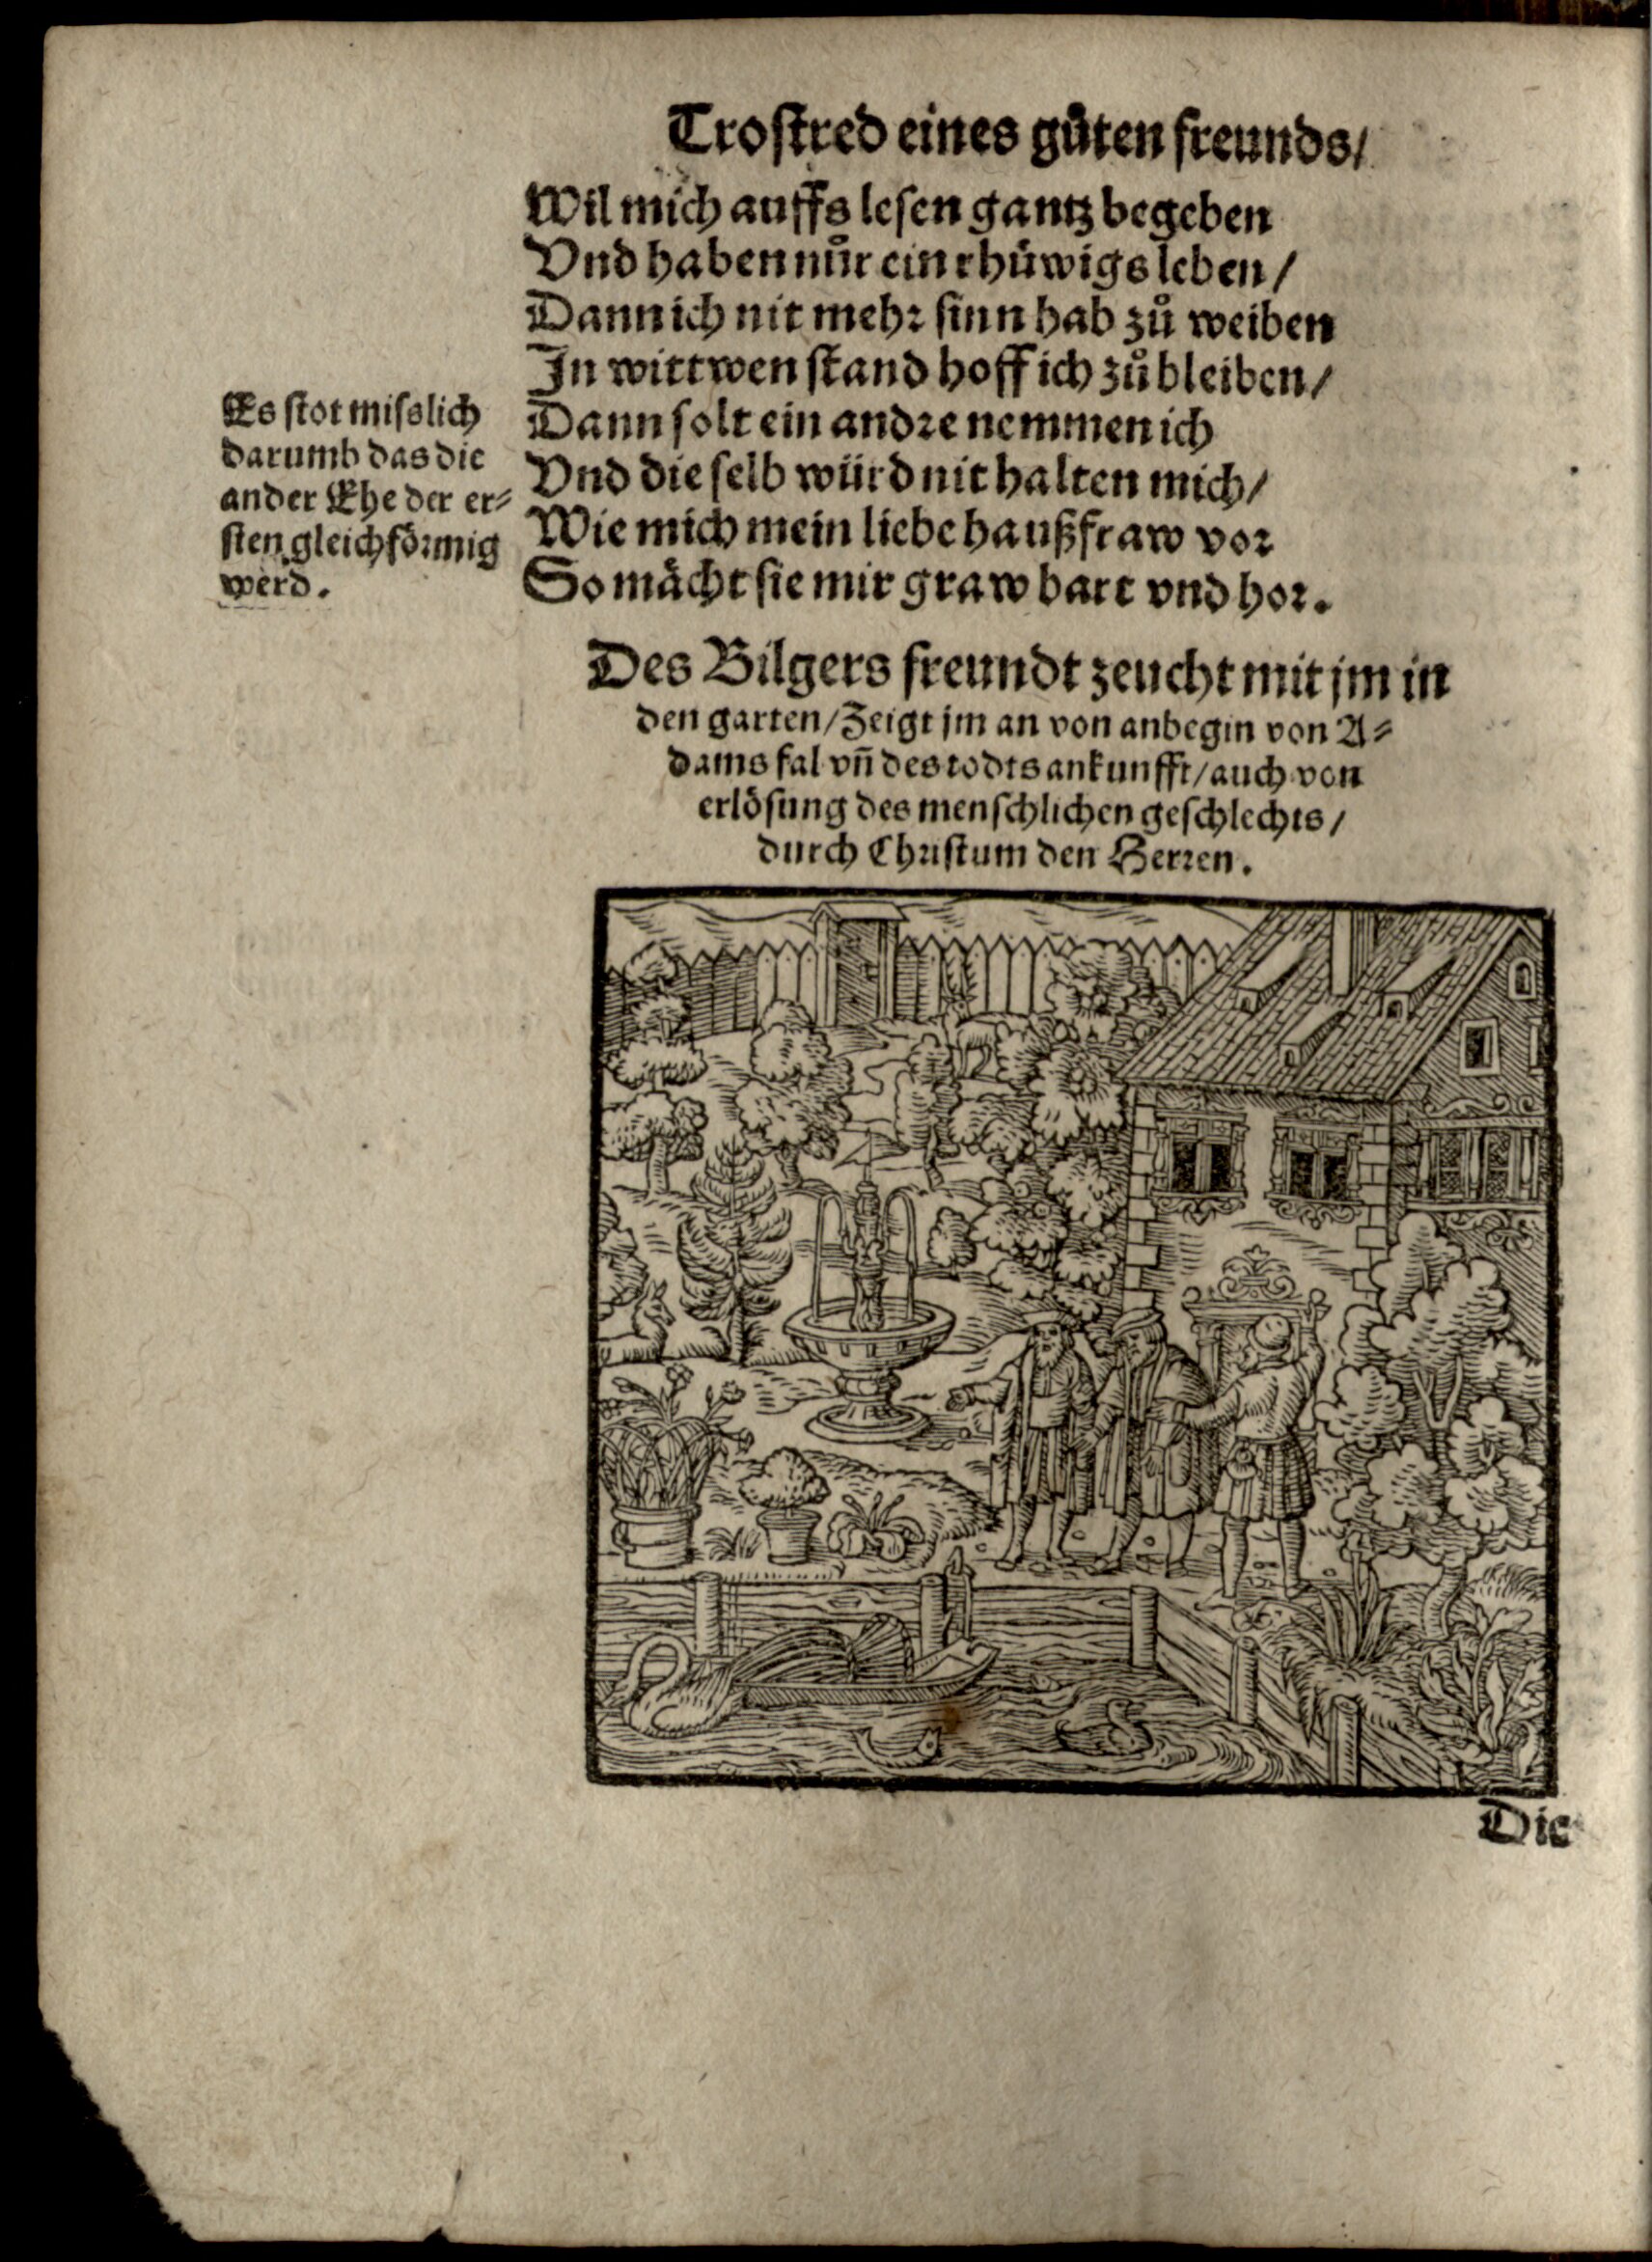 Trostred eines gůten freunds/
Wil mich auffs lesen gantz begeben
Vnd haben nůr ein rhüwigs leben/
Dann ich nit mehr sinn hab zů weiben
In wittwen stand hoff ich zů bleiben/
Dann solt ein andre nemmen ich
Vnd die selb würd nit halten mich/
Wie mich mein liebe haußfraw vor
So mächt sie mir graw bart vnd hor.
Es stot misslich
darumb das die
ander Ehe der er⸗
sten gleichförmig
werd.
Des Bilgers freundt zeucht mit jm in
den garten/Zeigt jm an von anbegin von A⸗
dams fal vñ des todts ankunfft/auch von
erlösung des menschlichen geschlechts/
durch Christum den Herren.
Die